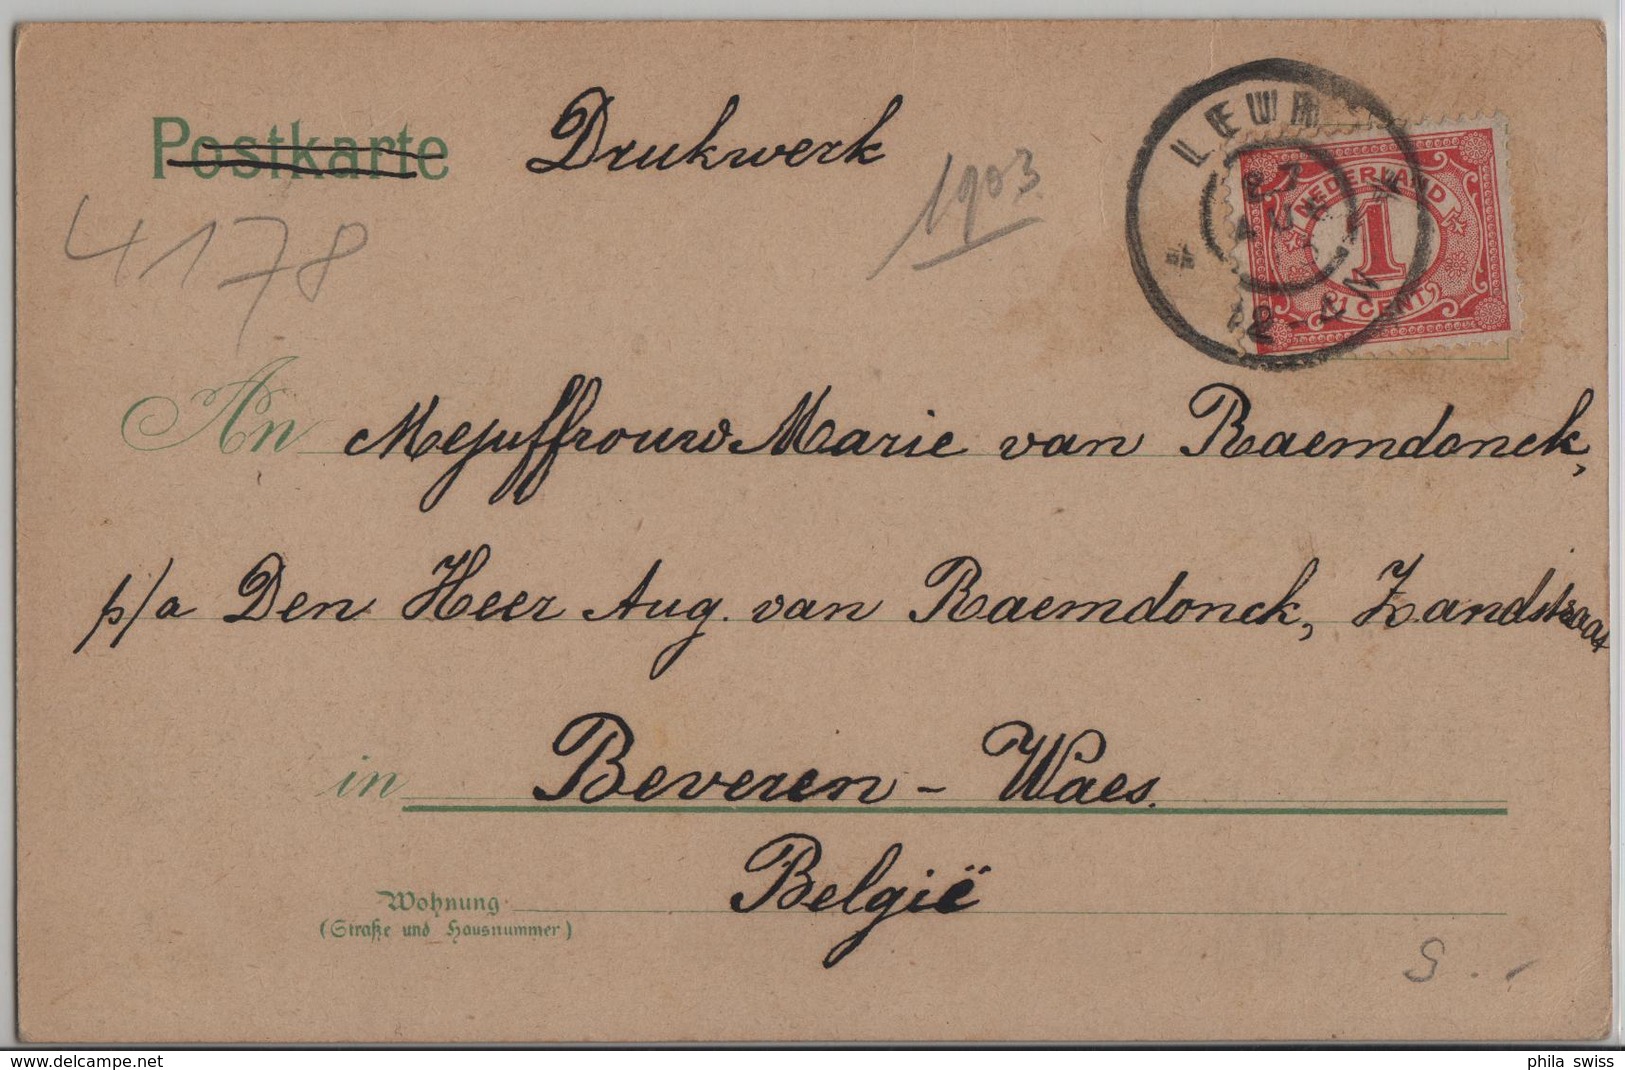 Postkarte Drukwerk
1903
4178
NEDERLAND
1
1 CENT
An Mejuffrouw Marie van Raemdonck,
p/a Den Heer Aug. van Raemdonck, Zandstraat
in Beveren - Waes.
België
Wohnung
(Straße und Hausnummer)
delcampe.net
phila_swiss